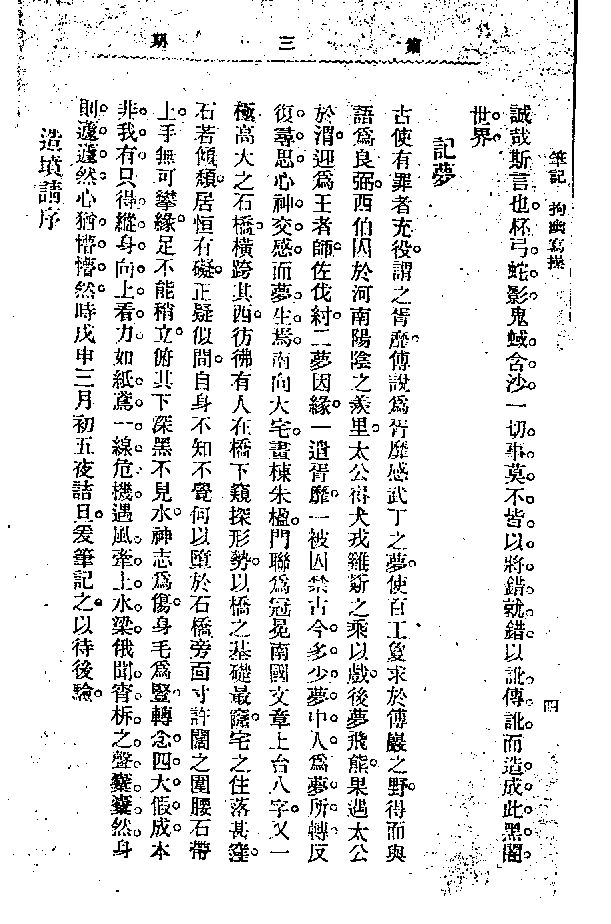 第三期
筆記 拘幽寫操
四
誠哉斯言也杯弓蛇影鬼蜮含沙一切事莫不皆以將錯就錯以訛傳訛而造成此黑闇
世界
記夢
古使有罪者充役謂之胥靡傅說爲胥靡感武丁之夢使百工夐求於傅巖之野得而與
語爲良弼西伯囚於河南陽陰之羑里太公得犬戎雞斯之乘以戲後夢飛熊果遇太公
於渭迎爲王者師佐伐紂二夢因緣一遺胥靡一被囚禁古今多少夢中人爲夢所轉反
復尋思心神交感而夢生焉南向大宅畫棟朱楹門聯爲冠冕南國文章上台八字又一
極高大之石橋橫跨其西彷彿有人在橋下窺探形勢以橋之基礎最窿宅之住落甚窪
石若傾頹居恒有礙正疑似間自身不知不覺何以墮於石橋旁面寸許闊之圍腰石帶
上手無可攀緣足不能稍立俯其下深黑不見水神志爲傷身毛爲豎轉念四大假成本
非我有只得縱身向上看力如紙鳶一線危機遇風牽上水梁俄聞宵柝之聲蘧蘧然身
則蘧蘧然心猶懵懵然時戊申三月初五夜詰旦爰筆記之以待後驗
造墳請序